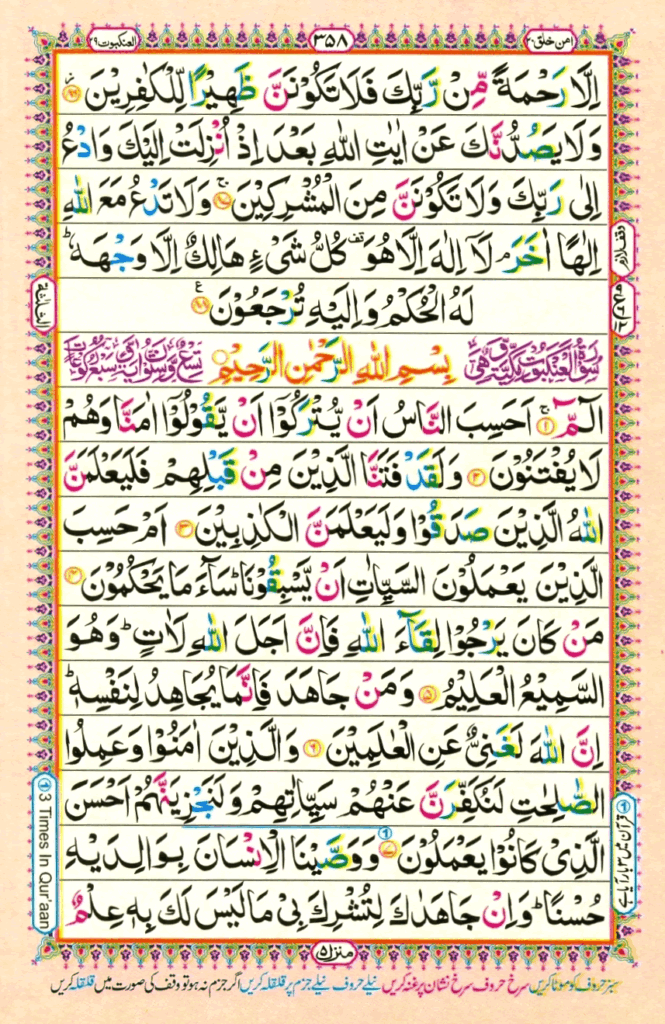 امن خلق ٢٠
٣٥٨
العنکبوت ٢٩
اِلَّا رَحْمَةً مِّنْ رَّبِّكَ فَلَا تَكُوْنَنَّ ظَهِيْرًا لِّلْكٰفِرِيْنَ ۝٨٦
وَلَا يَصُدُّنَّكَ عَنْ اٰيٰتِ اللّٰهِ بَعْدَ اِذْ اُنْزِلَتْ اِلَيْكَ وَادْعُ
اِلٰى رَبِّكَ وَلَا تَكُوْنَنَّ مِنَ الْمُشْرِكِيْنَ ۝٨٧ۚ وَلَا تَدْعُ مَعَ اللّٰهِ
اِلٰهًا اٰخَرَ ۘ لَاۤ اِلٰهَ اِلَّا هُوَ قف كُلُّ شَیْءٍ هَالِكٌ اِلَّا وَجْهَهٗ ؕ
لَهُ الْحُكْمُ وَاِلَيْهِ تُرْجَعُوْنَ ۝٨٨ ع
وقف لازم
الثلثة
سُوْرَةُ الْعَنْكَبُوْتِ مَكِّيَّةٌ وَّهِيَ
بِسْمِ اللّٰهِ الرَّحْمٰنِ الرَّحِيْمِ ۝
تِسْعٌ وَّسِتُّوْنَ اٰيَةً وَّسَبْعُ رُكُوْعَاتٍ
الٓمّٓ ۝١ۚ اَحَسِبَ النَّاسُ اَنْ يُّتْرَكُوْۤا اَنْ يَّقُوْلُوْۤا اٰمَنَّا وَهُمْ
لَا يُفْتَنُوْنَ ۝٢ وَلَقَدْ فَتَنَّا الَّذِيْنَ مِنْ قَبْلِهِمْ فَلَيَعْلَمَنَّ
اللّٰهُ الَّذِيْنَ صَدَقُوْا وَلَيَعْلَمَنَّ الْكٰذِبِيْنَ ۝٣ اَمْ حَسِبَ
الَّذِيْنَ يَعْمَلُوْنَ السَّيِّاٰتِ اَنْ يَّسْبِقُوْنَا ؕ سَآءَ مَا يَحْكُمُوْنَ ۝٤
مَنْ كَانَ يَرْجُوْا لِقَآءَ اللّٰهِ فَاِنَّ اَجَلَ اللّٰهِ لَاٰتٍ ؕ وَهُوَ
السَّمِيْعُ الْعَلِيْمُ ۝٥ وَمَنْ جَاهَدَ فَاِنَّمَا يُجَاهِدُ لِنَفْسِهٖ ؕ
اِنَّ اللّٰهَ لَغَنِیٌّ عَنِ الْعٰلَمِيْنَ ۝٦ وَالَّذِيْنَ اٰمَنُوْا وَعَمِلُوا
الصّٰلِحٰتِ لَنُكَفِّرَنَّ عَنْهُمْ سَيِّاٰتِهِمْ وَلَنَجْزِيَنَّهُمْ اَحْسَنَ
الَّذِیْ كَانُوْا يَعْمَلُوْنَ ۝٧ وَوَصَّيْنَا الْاِنْسَانَ بِوَالِدَيْهِ
حُسْنًا ؕ وَاِنْ جَاهَدٰكَ لِتُشْرِكَ بِیْ مَا لَيْسَ لَكَ بِهٖ عِلْمٌ
① قرآن میں ۳ بار آیا ہے
① 3 Times In Qur'aan
منزل ۵
سبز حروف کو موٹا کریں سرخ حروف سرخ نشان پر غنہ کریں نیلے حروف نیلے جزم پر قلقلہ کریں اگر جزم نہ ہو تو وقف کی صورت میں قلقلہ کریں